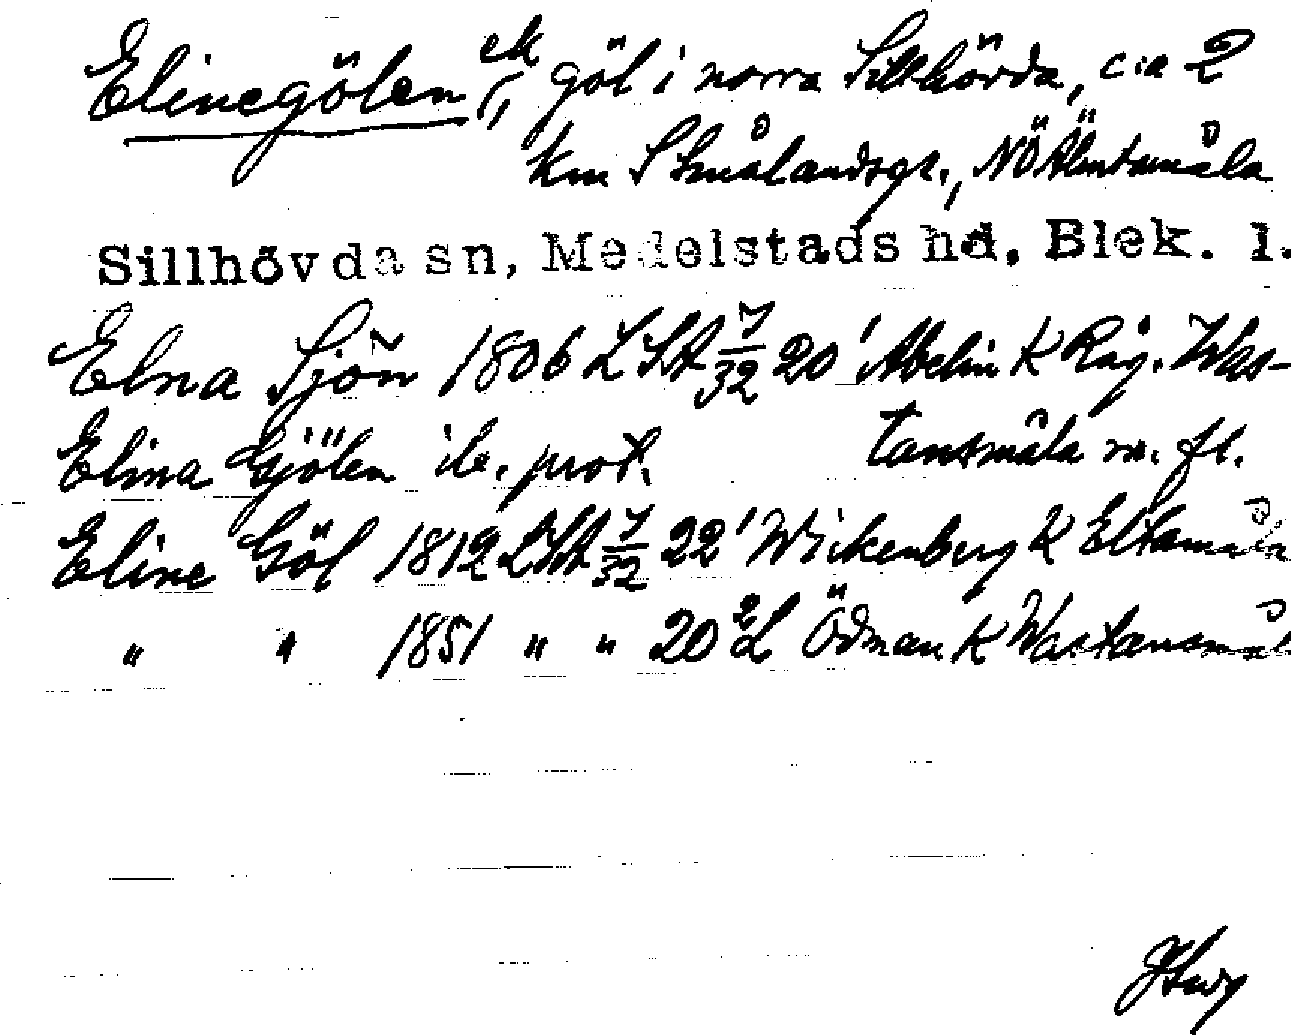 Elinegölen ek, göl i norra Sillhövda, c:a 2
km S Smålandsgr., NÖ Älmtamåla
Sillhövda sn, Medelstads hd, Blek. l.
Elna Sjön 1806 LSA 7/32 20' Abelin K Råg. Was-
Elina Gjölen ib. prot. tansmåla m. fl.
Eline Göl 1812 LSA 7/32 22' Wickenberg K Eltamåla
" " 1851 " " 20 L Ödman K Wastansmål